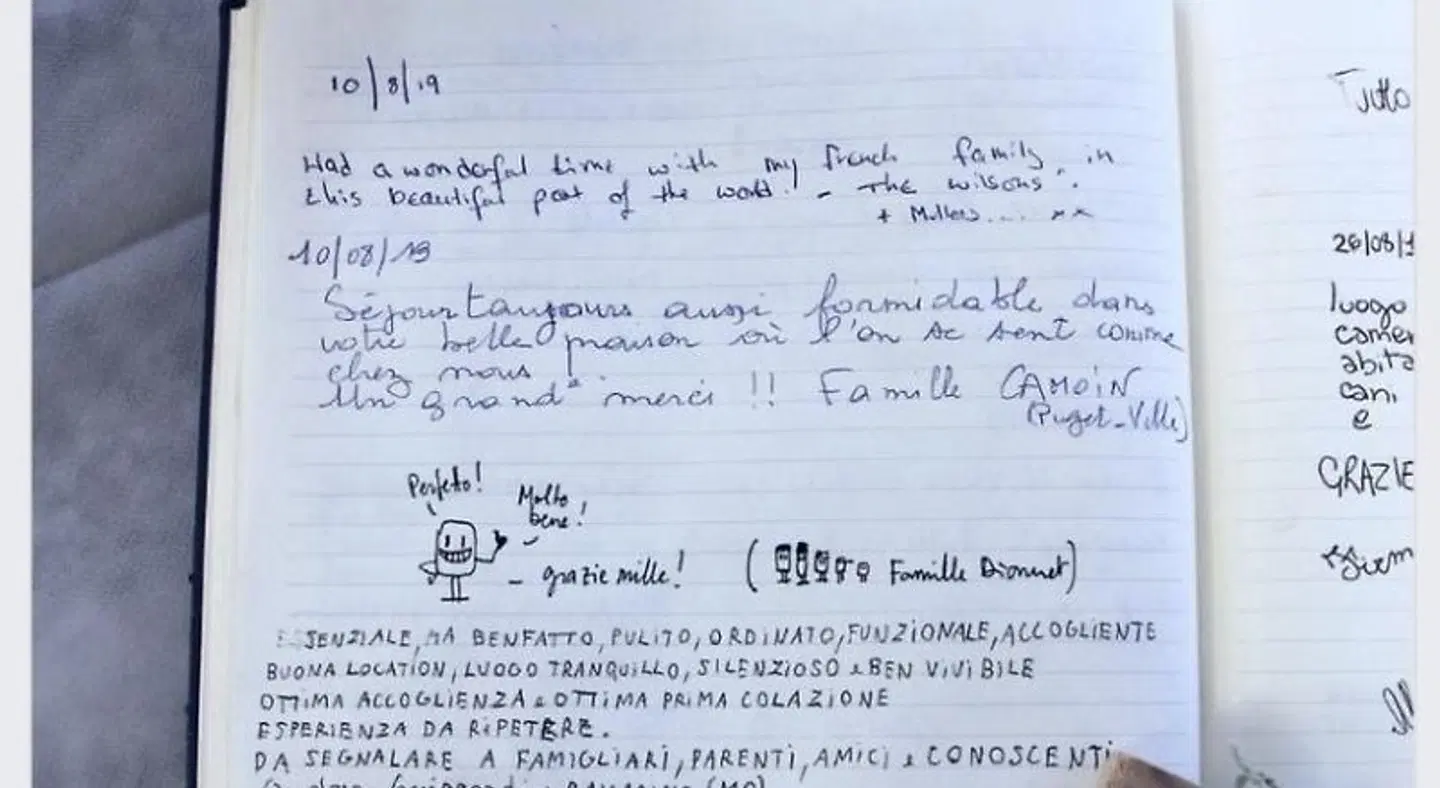 10/8/19
Had a wonderful time with my french family in
this beautiful part of the world! - The wilsons".
+ ... xx
10/08/19
Séjour toujours aussi formidable dans
votre belle maison où l'on se sent comme
chez nous !
Un grand merci !! Famille CAMOIN
(Puget-Ville)
Perfetto!
Molto
bene!
- grazie mille!
( Famille Dionnet)
ESSENZIALE, MA BENFATTO, PULITO, ORDINATO, FUNZIONALE, ACCOGLIENTE
BUONA LOCATION, LUOGO TRANQUILLO, SILENZIOSO e BEN VIVIBILE
OTTIMA ACCOGLIENZA e OTTIMA PRIMA COLAZIONE
ESPERIENZA DA RIPETERE.
DA SEGNALARE A FAMIGLIARI, PARENTI, AMICI e CONOSCENTI
Tutto
26/08/1
luogo
camer
abita
cani
e
GRAZIE